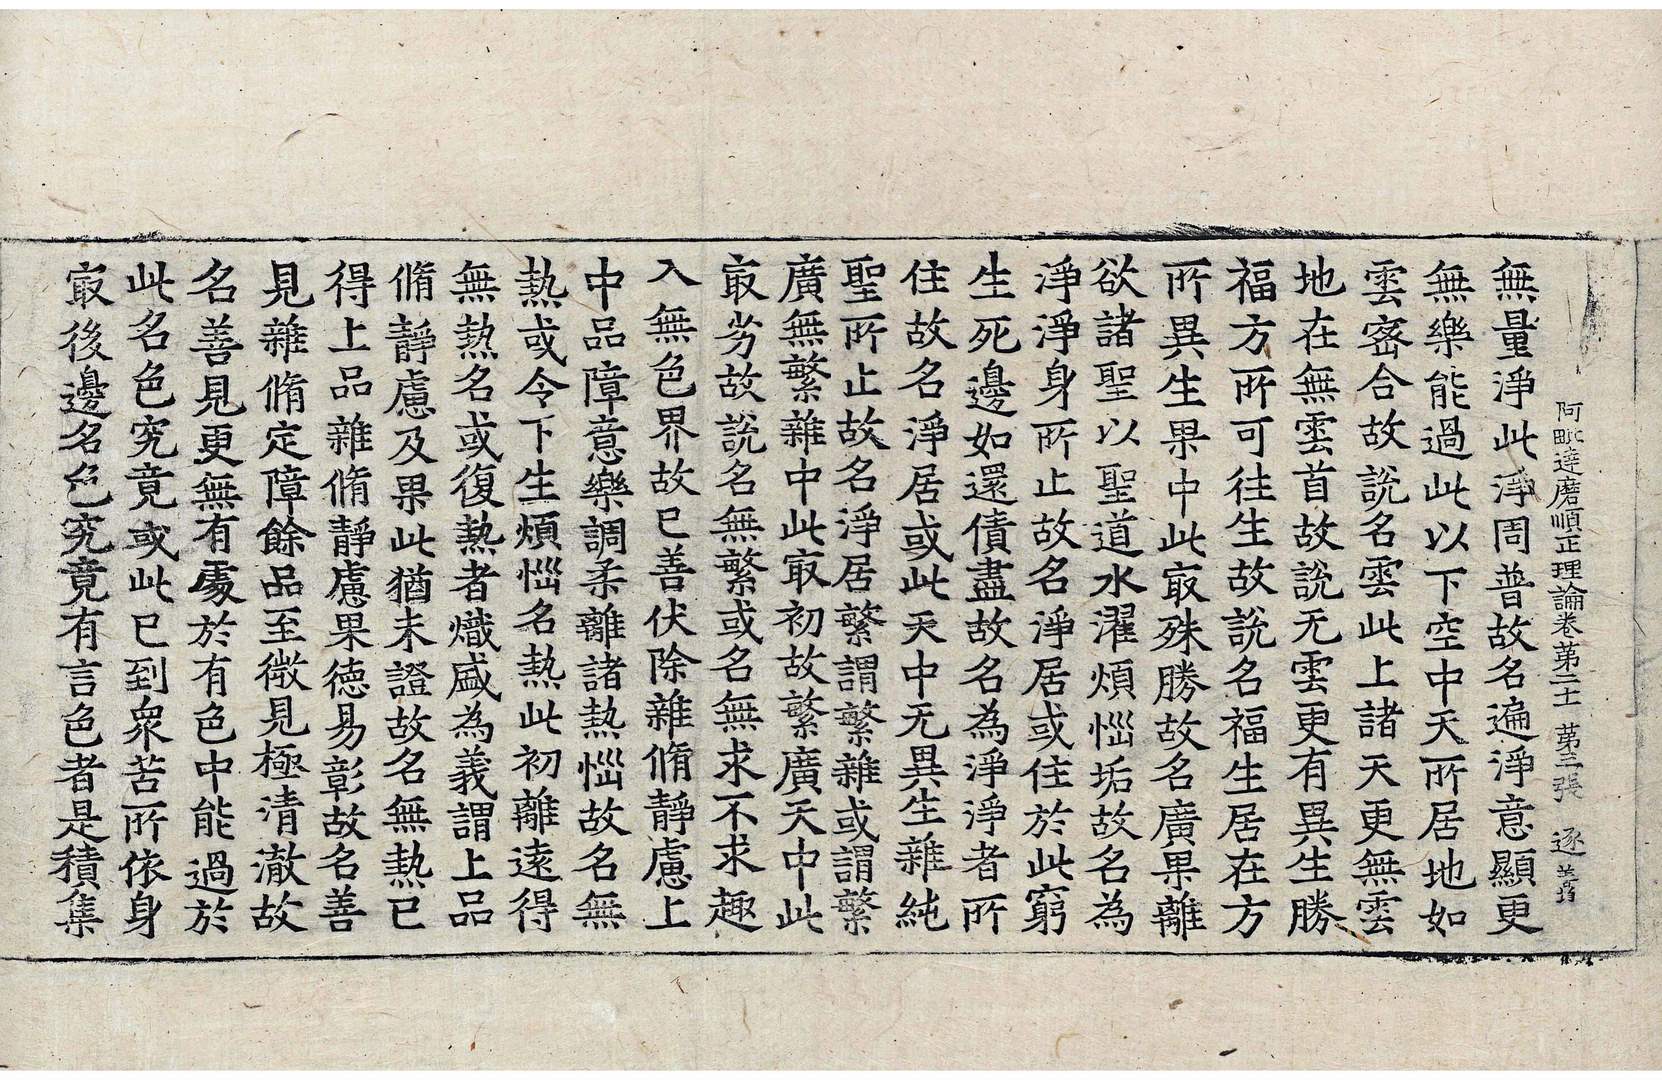 阿毗達磨順正理論卷第二十一 第三張 逐
無量淨此淨周普故名遍淨意顯更
無樂能過此以下空中天所居地如
雲密合故說名雲此上諸天更無雲
地在無雲首故說无雲更有異生勝
福方所可往生故說名福生居在方
所異生果中此㝡殊勝故名廣果離
欲諸聖以聖道水濯煩惱垢故名為
淨淨身所止故名淨居或住於此窮
生死邊如還債盡故名為淨淨者所
住故名淨居或此天中无異生雜純
聖所止故名淨居繁謂繁雜或謂繁
廣無繁雜中此㝡初故繁廣天中此
㝡劣故說名無繁或名無求不求趣
入無色界故已善伏除雜脩靜慮上
中品障意樂調柔離諸熱惱故名無
熱或令下生煩惱名熱此初離遠得
無熱名或復熱者熾盛為義謂上品
脩靜慮及果此猶未證故名無熱已
得上品雜脩靜慮果德易彰故名善
見雜脩定障餘品至微見極清澈故
名善見更無有處於有色中能過於
此名色究竟或此已到衆苦所依身
㝡後邊名色究竟有言色者是積集